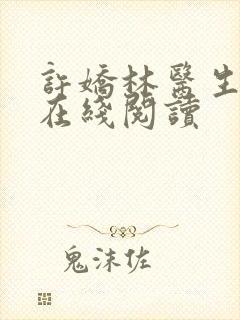 許嬌林醫生
在綫閱讀
鬼沫佐